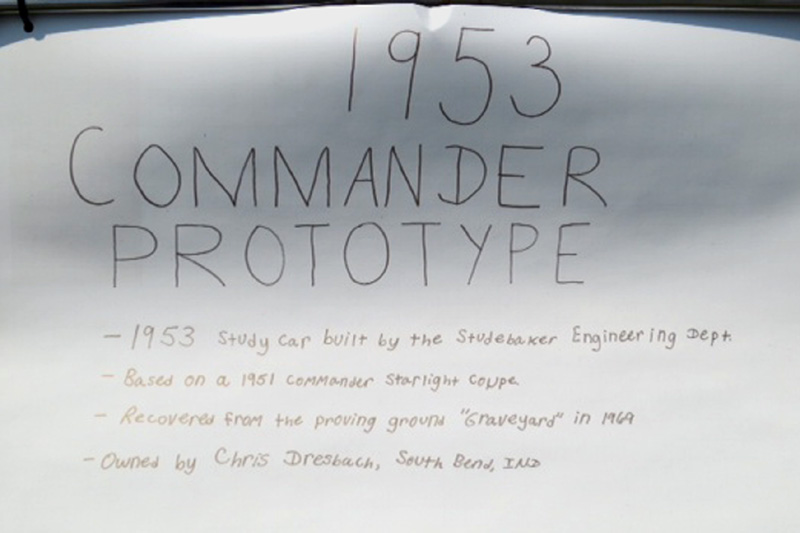 1953
COMMANDER
PROTOTYPE
- 1953 Study car built by the Studebaker Engineering Dept.
- Based on a 1951 Commander Starlight Coupe.
- Recovered from the proving ground "Graveyard" in 1969
- Owned by Chris Dresbach, South Bend, IND